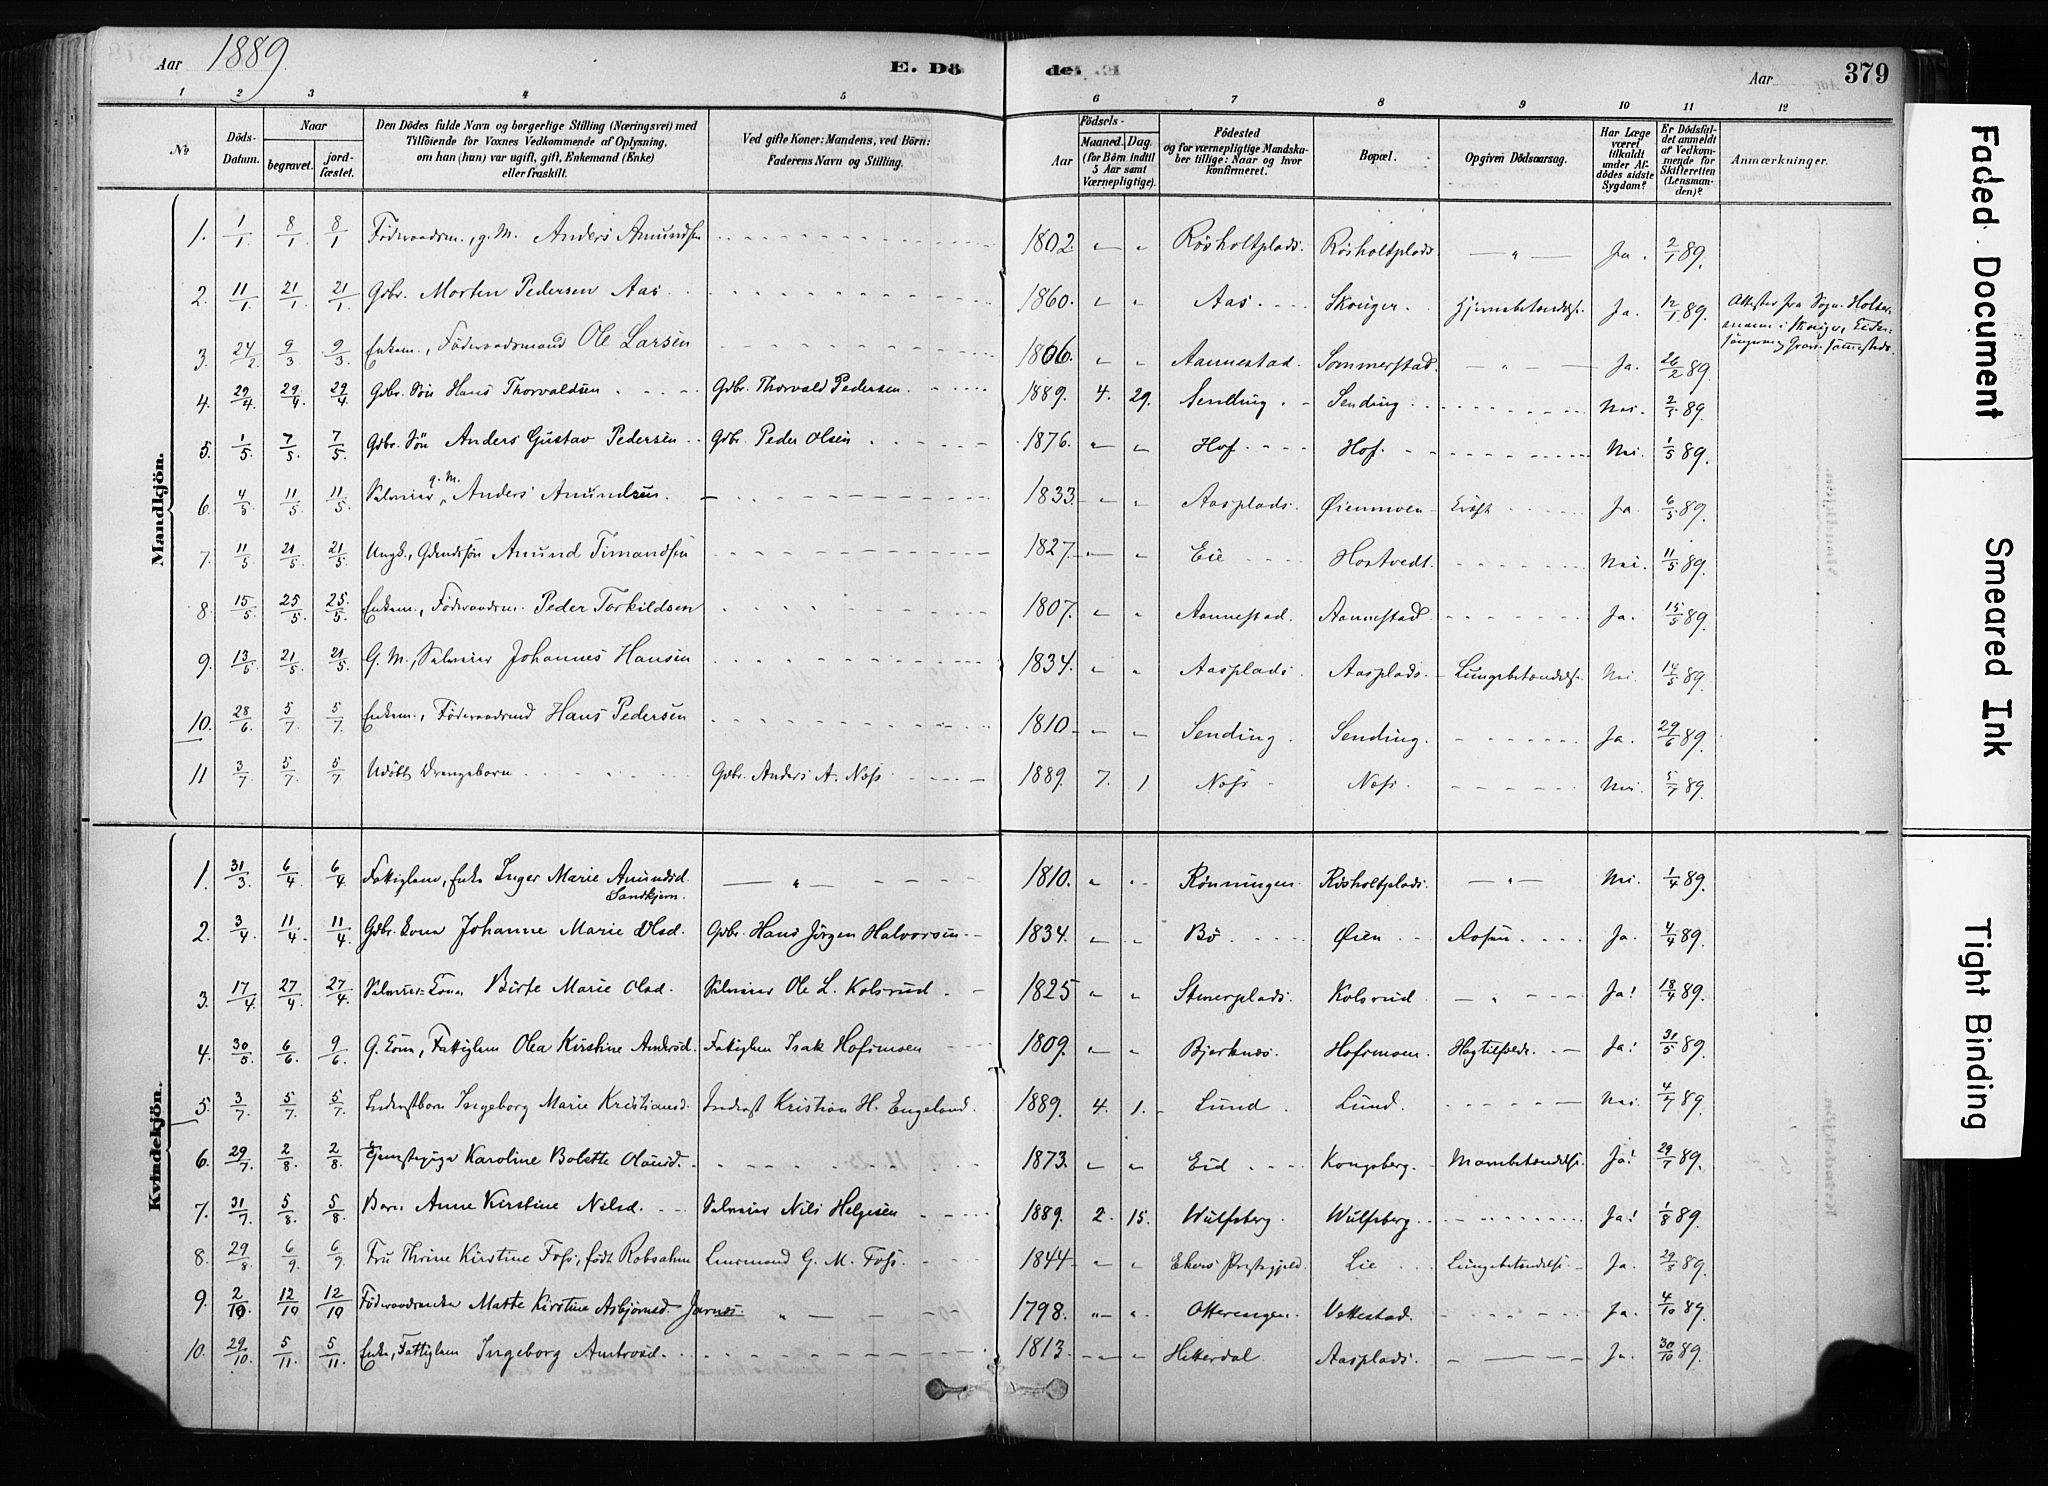 Aar 1889 E. Dö de. Aar 379
1 2 3 4 5 6 7 8 9 10 11 12
№ Döds-Datum. Naar begravet. jord-fæstet. Den Dödes fulde Navn og borgerlige Stilling (Næringsvei) med Tilföiende for Voxnes Vedkommende af Oplysning, om han (hun) var ugift, gift, Enkemand (Enke) eller fraskilt. Ved gifte Koner: Mandens, ved Börn: Faderens Navn og Stilling. Födsels- Aar Maaned. Dag. (for Börn indtil 5 Aar samt Værnepligtige). Födested og for værnepligtige Mandskaber tillige: Naar og hvor konfirmeret. Bopæl. Opgiven Dödsaarsag. Har Læge været tilkaldt under Afdödes sidste Sygdom? Er Dödsfaldet anmeldt af Vedkommende for Skifteretten (Lensmanden)? Anmærkninger.
Mandkjön.
1. 1/1 8/1 8/1 Föderaadsm., g. M. Anders Amundsen 1802 " " Rösholtplads. Rösholtplads. — " — Ja. 2/1 89.
2. 11/1 21/1 21/1 Gdbr. Morten Pedersen Aas 1860. " " Aas Skouger Hjernebetændelse. Ja. 12/1 89. Attester fra Sogn.
3. 24/2 9/3 9/3 Enkem., Föderaadsmand Ole Larsen 1806. " " Aannestad. Sommerstad. — " — Ja. 26/2 89.
4. 29/4 29/4 29/4 Gdbr. Sön Hans Thorvaldsen Gdbr. Thorvald Pedersen. 1889. 4. 29. Sending Sending Nei. 2/5 89.
5. 1/5 7/5 7/5 Gdbr. Sön Anders Gustav Pedersen Gdbr. Peder Olsen 1876. " " Hof Hof. Nei. 1/5 89.
6. 4/5 11/5 11/5 Selveier g. M. Anders Amundsen. 1833. " " Aasplads. Øienmoen Ja. 6/5 89.
7. 11/5 21/5 21/5 Ungk., Gdmdssön Amund Simandsen 1827. " " Eie Hostvedt. Nei. 11/5 89.
8. 15/5 25/5 25/5 Enkem., Föderaadsm. Peder Torkildsen 1807. " " Aannestad. Aannestad. Ja. 15/5 89.
9. 13/5 21/5 21/5 G. M., Selveier Johannes Hansen 1834. " " Aasplads Aasplads. Lungebetændelse. Nei. 14/5 89.
10. 28/6 5/7 5/7 Enkem., Föderaadsmd Hans Pedersen 1810 " " Sending. Sending. Ja. 29/6 89.
11 3/7 5/7 5/7 Udöbt Drengebarn Gdbr. Anders A. Noss 1889. 7. 1. Noss Noss. Nei. 5/7 89.
Kvindekjön.
1. 31/3 6/4 6/4 Fattiglem, Enke Inger Marie Amundsd. Sandkjern. — " — 1810. " " Rönningen. Rösholtplads. — " — Nei. 1/4 89.
2. 3/4 11/4 11/4 Gdbr. Kone Johanne Marie Olsd. Gdbr. Hans Jörgen Halvorsen 1834. " " Bö Øien Rosen Ja. 4/4 89.
3. 17/4 27/4 27/4 Selveier-Kone Birte Marie Olsd. Selveier Ole L. Kolsrud 1825 " " Stenerplads. Kolsrud — " — Ja! 18/4 89.
4. 30/5 6/6 9/6 G. Kone, Fattiglem Olea Kirstine Andersd. Fattiglem Isak Hofsmoen 1809. " " Bjerknæs. Hofsmoen. Ja! 31/5 89.
5. 3/7 5/7 5/7 Inderstbarn Ingeborg Marie Kristiansd. Inderst Kristian H. Engelund. 1889. 4. 1. Lund. Lund. Nei. 4/7 89.
6. 29/7 2/8 2/8 Tjenestepige Karoline Bolette Olausd. 1873. " " Eid Kongsberg. Ja! 29/7 89.
7. 31/7 5/8 5/8 Barn Anne Kirstine Nilsd. Selveier Nils Helgesen 1889. 2. 15. Wulfsberg. Wulfsberg. Ja! 1/8 89.
8. 29/8 6/9 6/9. Fru Thrine Kirstine Foss, födt Robsahm Lensmand G. M. Foss. 1844 " " Ekers Præstegjeld. Lie Lungebetændelse Ja. 29/8 89.
9. 2/10 12/10 12/10 Föderaadsenke Matte Kirstine Asbjørnsd. Jarnæs. " 1798. " " Otterengen. Vettestad. Ja. 4/10 89.
10. 29/10. 5/11 5/11. Enke, Fattiglem Ingeborg Ambrosd. 1813. " " Hitterdal. Aasplads. Ja. 30/10 89.
Faded Document
Smeared Ink
Tight Binding